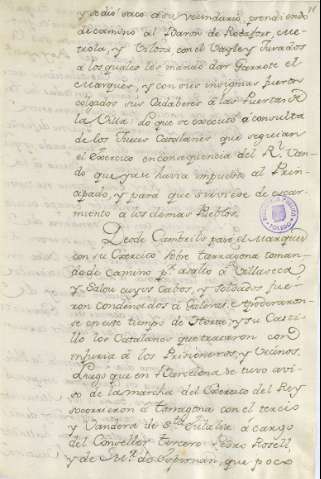 y se dió saco a su vecindario, prendiendo
de camino al Baron de Rocafort, Me-
trola, y Vilosa con el Vayle y Jurados
à los quales les mandó dar Garrote el
Marques, y con sus insignias fueron
colgados sus Cadaberes à las Puertas de
la Villa: lo que se executó à consulta
de los Jueces Catalanes que seguian
el Exercito en consequencia del Rl. Ban-
do que ya se havia impuesto al Prin-
cipado, y para que sirviese de escar-
miento à los demas Pueblos.
Desde Cambrils pasó el Marques
con su Exercito sobre Tarragona toman-
do de Camino pr. asalto à Villaseca
y Salou cuyos Cabos, y Soldados fue-
ron condenados à Galeras. Apoderaron-
se en este tiempo de Horta, y su Casti-
llo los Catalanes que trataron con
infamia à los Prisioneros, y Vecinos.
Luego que en Barcelona se tuvo avi-
so de la marcha del Exercito del Rey
socorrieron à Tarragona con el tercio
y Vandera de Sta. Eulalia à cargo
del Conseller tercero Pedro Rosell,
y de Mr. de Espernan, que poco